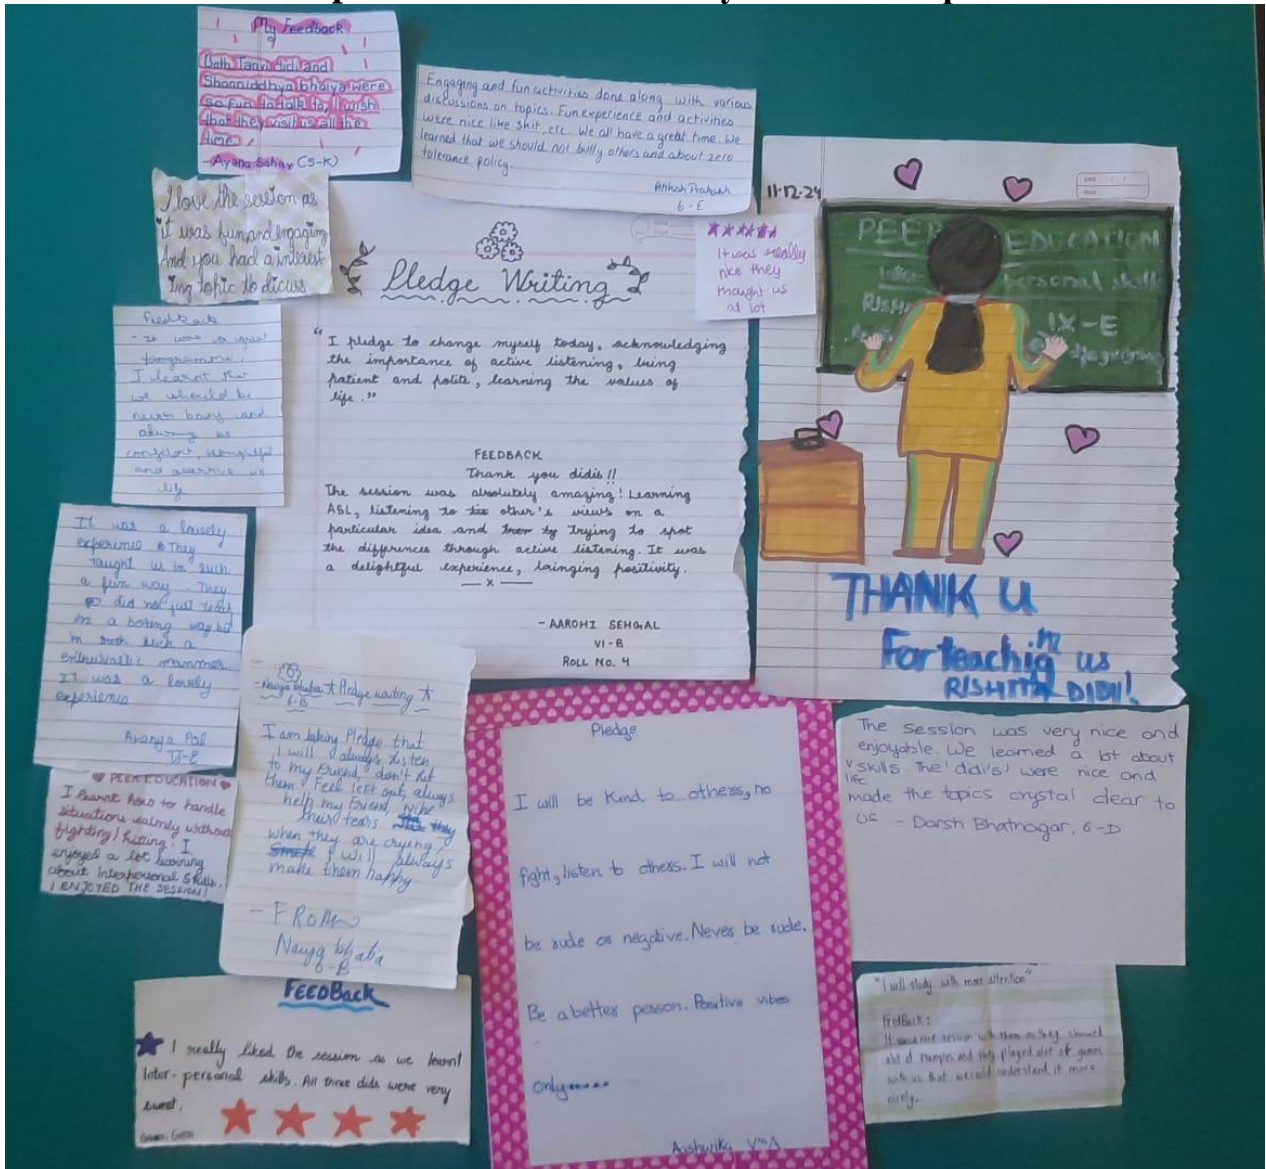 My Feedback
Both Tanvi didi and
Shanniddhya bhaiya were
so fun to talk to, I wish
that they visit us all the
time.
- Ayana Sahay (5-K)
Engaging and fun activities done along with various
discussions on topics. Fun experience and activities
were nice like skit, etc. We all have a great time. We
learned that we should not bully others and about zero
tolerance policy.
6-E
I love the session as
it was fun and engaging
And you had a interest
ing topic to dicuss
Pledge Writing
"I pledge to change myself today, acknowledging
the importance of active listening, being
patient and polite, learning the values of
life."
FEEDBACK
Thank you didis!!
The session was absolutely amazing! Learning
ASL, listening to other's views on a
particular idea and trying to spot
the differences through active listening. It was
a delightful experience, bringing positivity.
- x -
- AAROHI SEHGAL
VI-B
ROLL NO. 4
It was really
nice they
thought us
at lot
11-12-24
PEER EDUCATION
personal skills
IX-E
THANK U
For teachign us
RISHITA DIDI!
Feedback
- It was a
I learnt that
we should be
never
and
life
It was a lovely
experience They
taught us in such
a fun way. They
did not just teach
in a boring way but
in such a
enthusiastic mannner
It was a lovely
experience
Ananya Pal
♥ PEER EDUCATION ♥
I learnt how to handle
situations calmly without
fighting/hitting. I
enjoyed a lot learning
about Interpersonal Skills.
I ENJOYED THE SESSION!
Navya bhatia ★ Pledge writing ★
6-B
I am taking Pledge that
I will always listen
to my friend, don't let
them Feel left out, always
help my friend, wipe
their tears
when they are crying,
I will always
make them happy.
- FROM
Navya bhatia
6-B
Pledge
I will be kind to others, no
fight, listen to others. I will not
be rude or negative. Never be rude.
Be a better person. Positive vibes
only.....
The session was very nice and
enjoyable. We learned a lot about
life skills. The 'didi's' were nice and
made the topics crystal clear to
us - Darsh Bhatnagar, 6-D
FEEDBack
I really liked the session as we learnt
Inter-personal skills. All three didis were very
sweet.
"I will study with more attention"
FeedBack:
It nice session with them as they showed
alot of examples and they played alot of games
with us that we could understand it more
nicely.